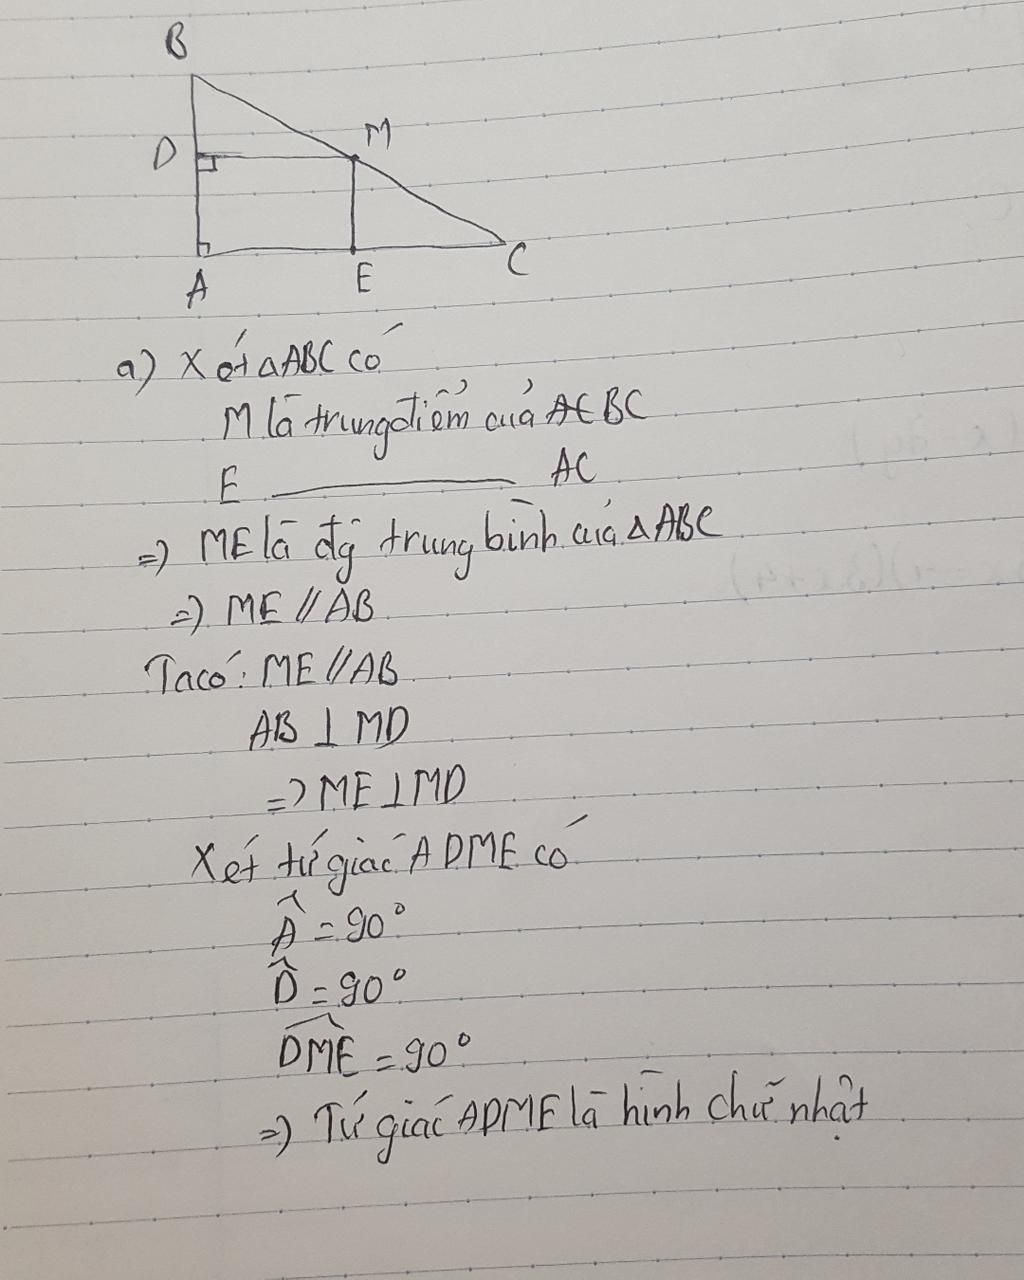 B
D
M
A
E
C
a) Xét △ABC có
M là trung điểm của BC
E ———— AC
=) ME là đg trung bình của △ABC
=) ME // AB
Ta có: ME // AB
AB ⊥ MD
=) ME ⊥ MD
Xét tứ giác ADME có
Â = 90°
D̂ = 90°
DME = 90°
=) Tứ giác ADME là hình chữ nhật